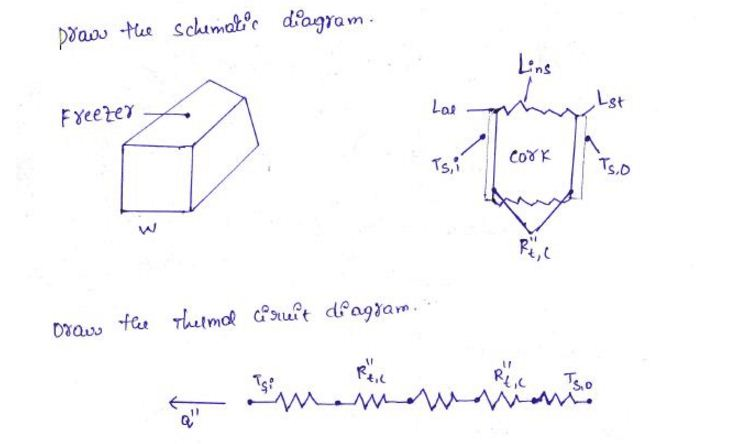 Draw the schematic diagram.
Freezer
W
Lins
Lal
Lst
Ts,i
cork
Ts,o
R"t,c
Draw the thermal circuit diagram.
Ts,i
R"t,c
R"t,c
Ts,o
Q"